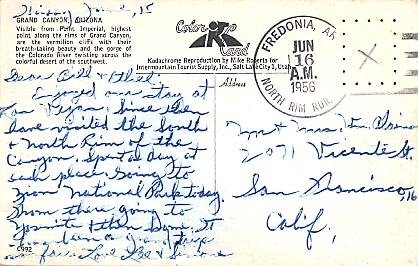 GRAND CANYON, ARIZONA
Visible from Point Imperial, highest
point along the rims of Grand Canyon,
are the vermilion cliffs with their
breath-taking beauty and the gorge of
the Colorado River twisting across the
colorful desert of the southwest.
Dear Bill & Ethel:
Enjoyed our stay at
Since then
have visited the South
& North Rim of the
Canyon. Spent a day at
each place. Going to
Zion National Park today.
From there going to
Yosemite & then home. It
has been a grand trip
so far. Love
C992
Color Card
Kodachrome Reproduction by Mike Roberts for
Intermountain Tourist Supply, Inc., Salt Lake City 1, Utah
Address
FREDONIA, AR
JUN
16
A.M.
1956
NORTH RIM RUR.
Mr & Mrs. Wm.
2071 Vicente St
San Francisco, 16
Calif.